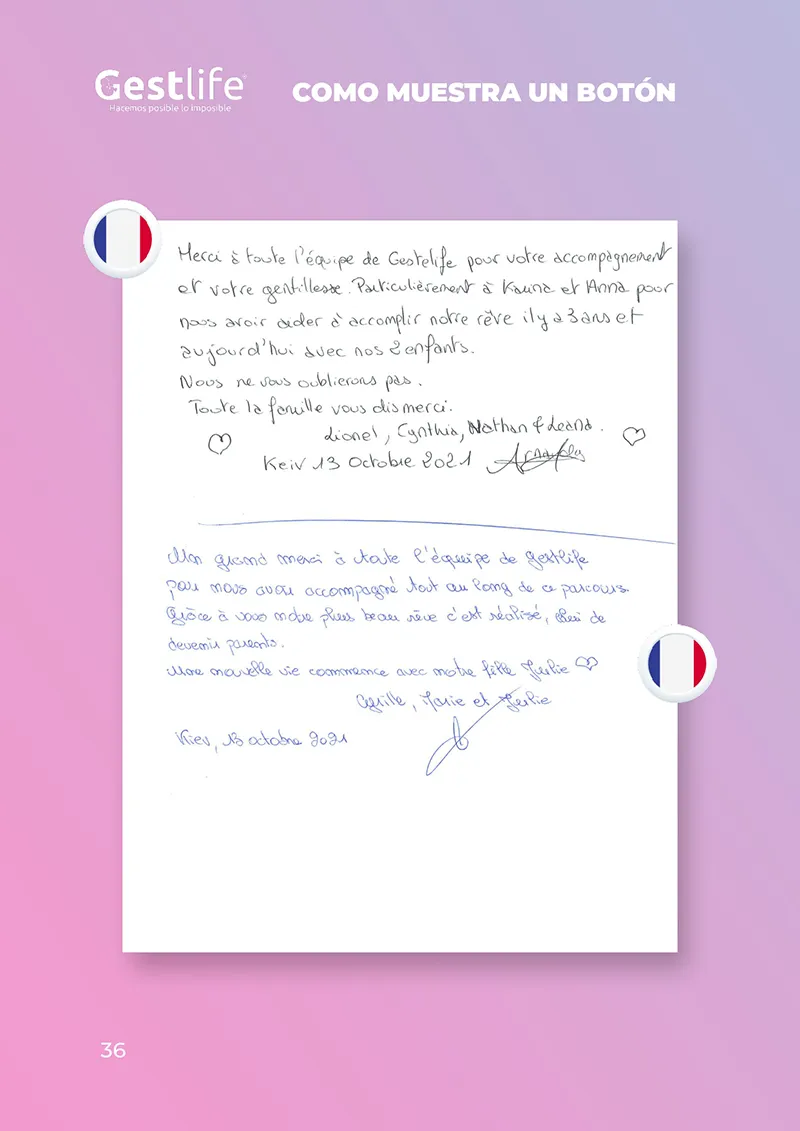 Gestlife
Hacemos posible lo imposible
COMO MUESTRA UN BOTÓN
Merci à toute l'équipe de Gestelife pour votre accompagnement
et votre gentillesse. Particulièrement à Karina et Anna pour
nous avoir aider à accomplir notre rêve il y a 3 ans et
aujourd'hui avec nos 2 enfants.
Nous ne vous oublierons pas.
Toute la famille vous dis merci.
Lionel, Cynthia, Nathan & Leana.
Keiv 13 Octobre 2021
Un grand merci à toute l'équipe de gestlife
pour nous avoir accompagné tout au long de ce parcours
Grâce à vous notre plus beau rêve c'est réalisé, celui de
devenir parents.
Une nouvelle vie commence avec notre fille Julie
Cyrille, Marie et Julie
Kiev, 13 octobre 2021
36